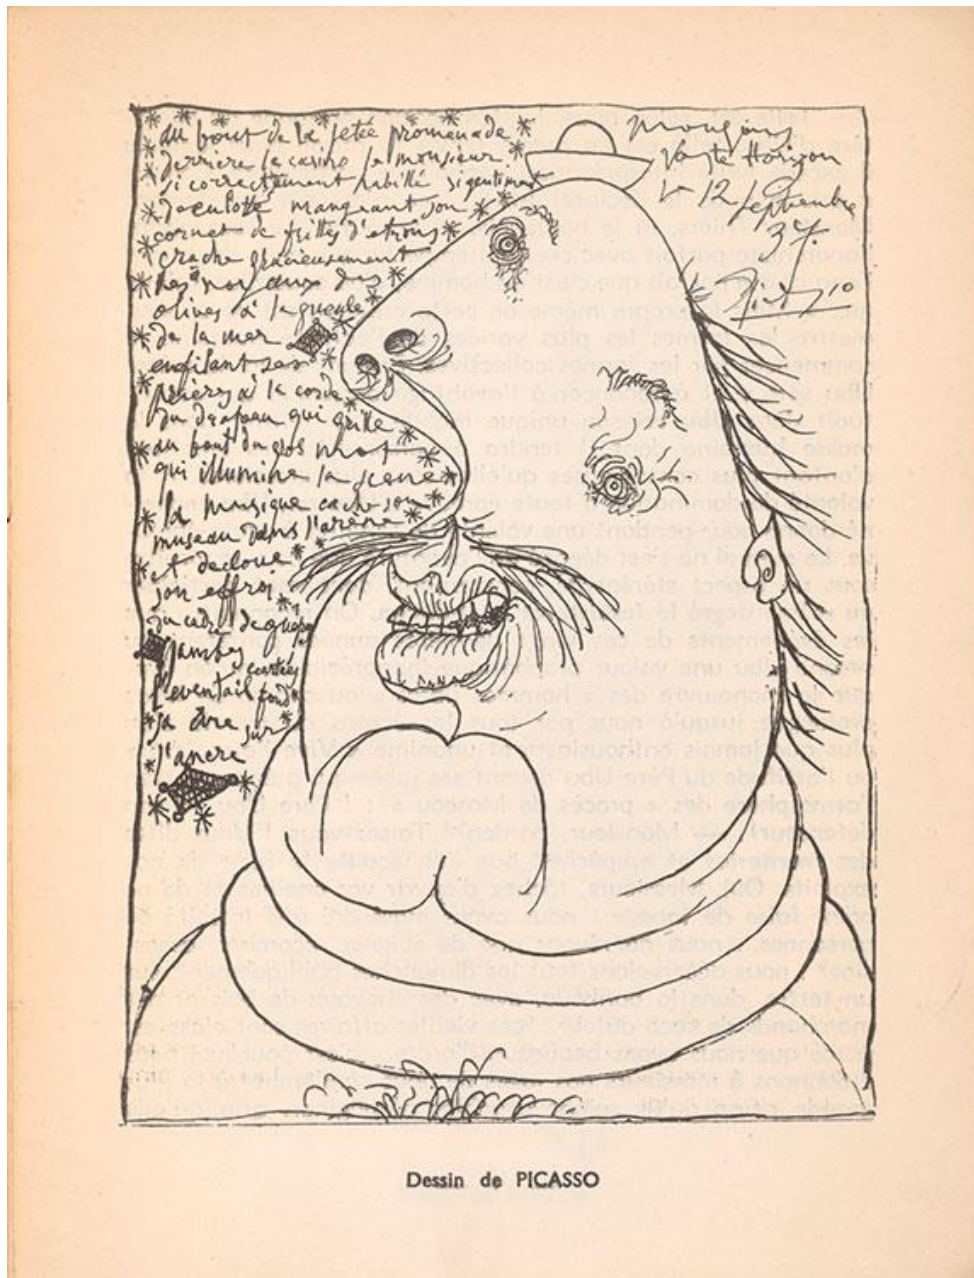 du bout de la jetée promenade
derrière le casino le monsieur
si correctement habillé si gentiment
déculotté mangeant son
cornet de frittes d'etrons
crache gracieusement
les noyaux des
olives à la gueule
de la mer
enfilant ses
prières à la corde
du drapeau qui grille
au bout du gros mot
qui illumine la scene
la musique cache son
museau dans l'arène
et decloue
son effroi
du cadre de
jambes
l'eventail
sur
l'ancre
Mougins
Vaste Horizon
le 12 septembre
37.
Picasso
Dessin de PICASSO